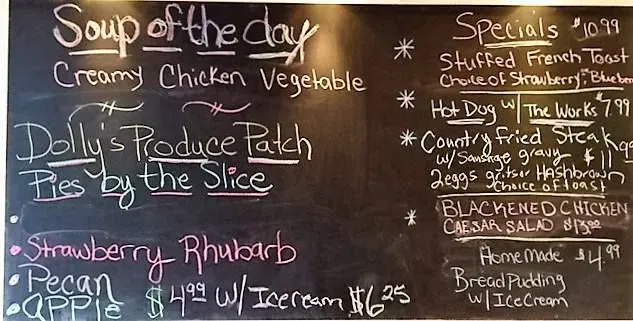 Soup of the day
Creamy Chicken Vegetable
Dolly's Produce Patch
Pies by the Slice
Strawberry Rhubarb
Pecan
APPle $4.99 W/ Icecream $6.25
Specials $10.99
Stuffed French Toast
Choice of Strawberry, Blueber
Hot Dog w/ The Works $7.99
Country fried Steak
w/ Sausage gravy $11.99
2eggs grits or HAshbrown
Choice of toast
BLACKENED CHICKEN
CAESAR SALAD $13.00
HomeMade $4.99
Bread Pudding
W/ Ice Cream